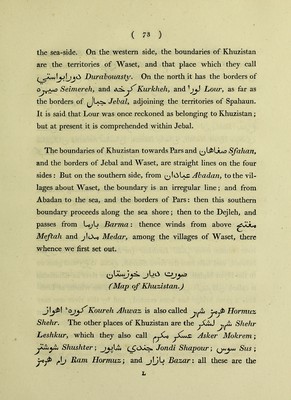 ( 73 )
the sea-side. On the western side, the boundaries of Khuzistan
are the territories of Waset, and that place which they call
Durabouasty. On the north it has the borders of
Seimereh, and Kurkheh, and Lour, as far as
the borders of جبال Jebal, adjoining the territories of Spahaun.
It is said that Lour was once reckoned as belonging to Khuzistan;
but at present it is comprehended within Jebal.
The boundaries of Khuzistan towards Pars and سفاهان Sfahan,
and the borders of Jebal and Waset, are straight lines on the four
sides: But on the southern side, from عبادان Abadan, to the vil-
lages about Waset, the boundary is an irregular line; and from
Abadan to the sea, and the borders of Pars: then this southern
boundary proceeds along the sea shore; then to the Dejleh, and
passes from Barma: thence winds from above مفتح
Meftah and Medar, among the villages of Waset, there
whence we first set out.
صورت ديار خوزستان
(Map of Khuzistan.)
Koureh Ahwaz is also called هرمز شهر Hormuz
Shehr. The other places of Khuzistan are the شهر لشکر Shehr
Leshkur, which they also call عسکر مکرم Asker Mokrem;
شوشتر Shushter; جندي شاپور Jondi Shapour; سوس Sus;
رام هرمز Ram Hormuz; and بازار Bazar: all these are the
L